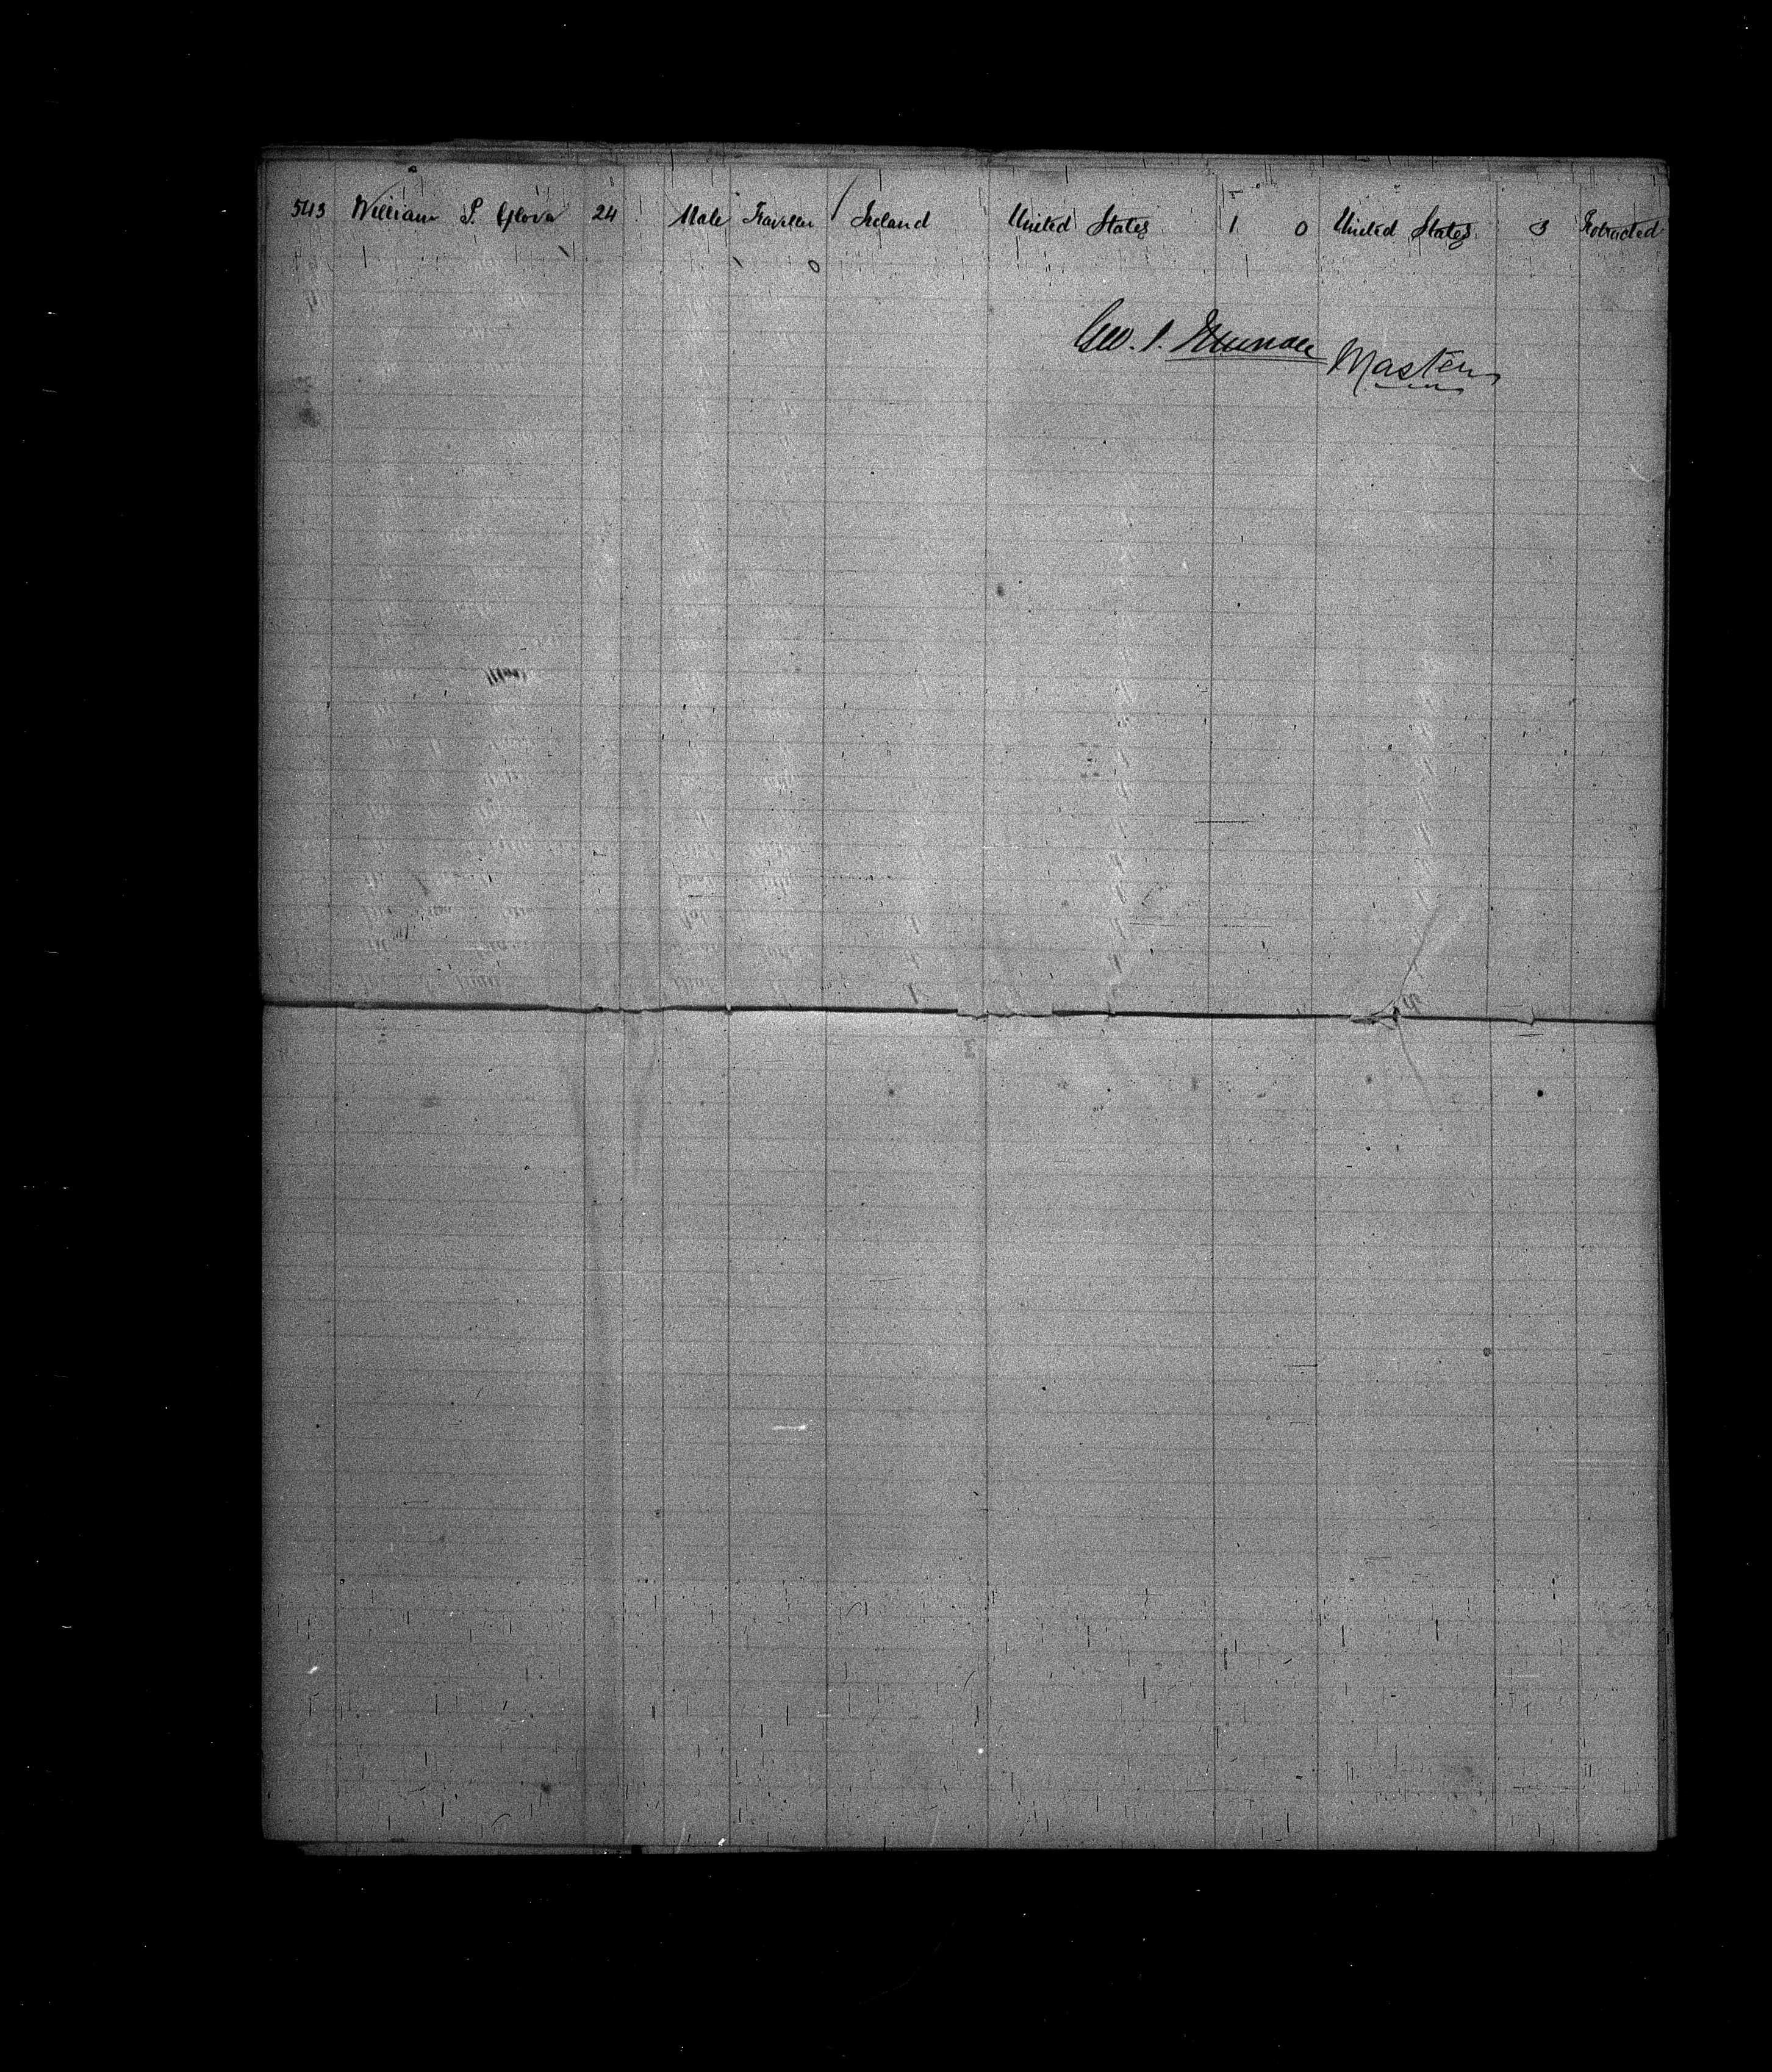 543 William P. Glova 24 Male Traveller Ireland United States 1 0 United States 3 Protracted
Geo. S. Master